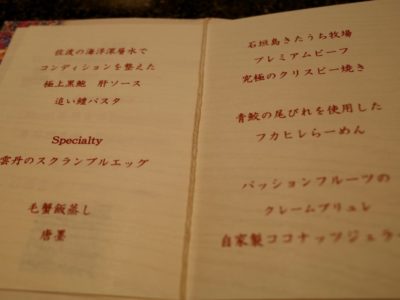 佐渡の海洋深層水で
コンディションを整えた
極上黒鮑 肝ソース
追い鰹パスタ
Specialty
雲丹のスクランブルエッグ
毛蟹飯蒸し
唐墨
石垣島きたうち牧場
プレミアムビーフ
究極のクリスピー焼き
青鮫の尾びれを使用した
フカヒレらーめん
パッションフルーツの
クレームブリュレ
自家製ココナッツジェラ